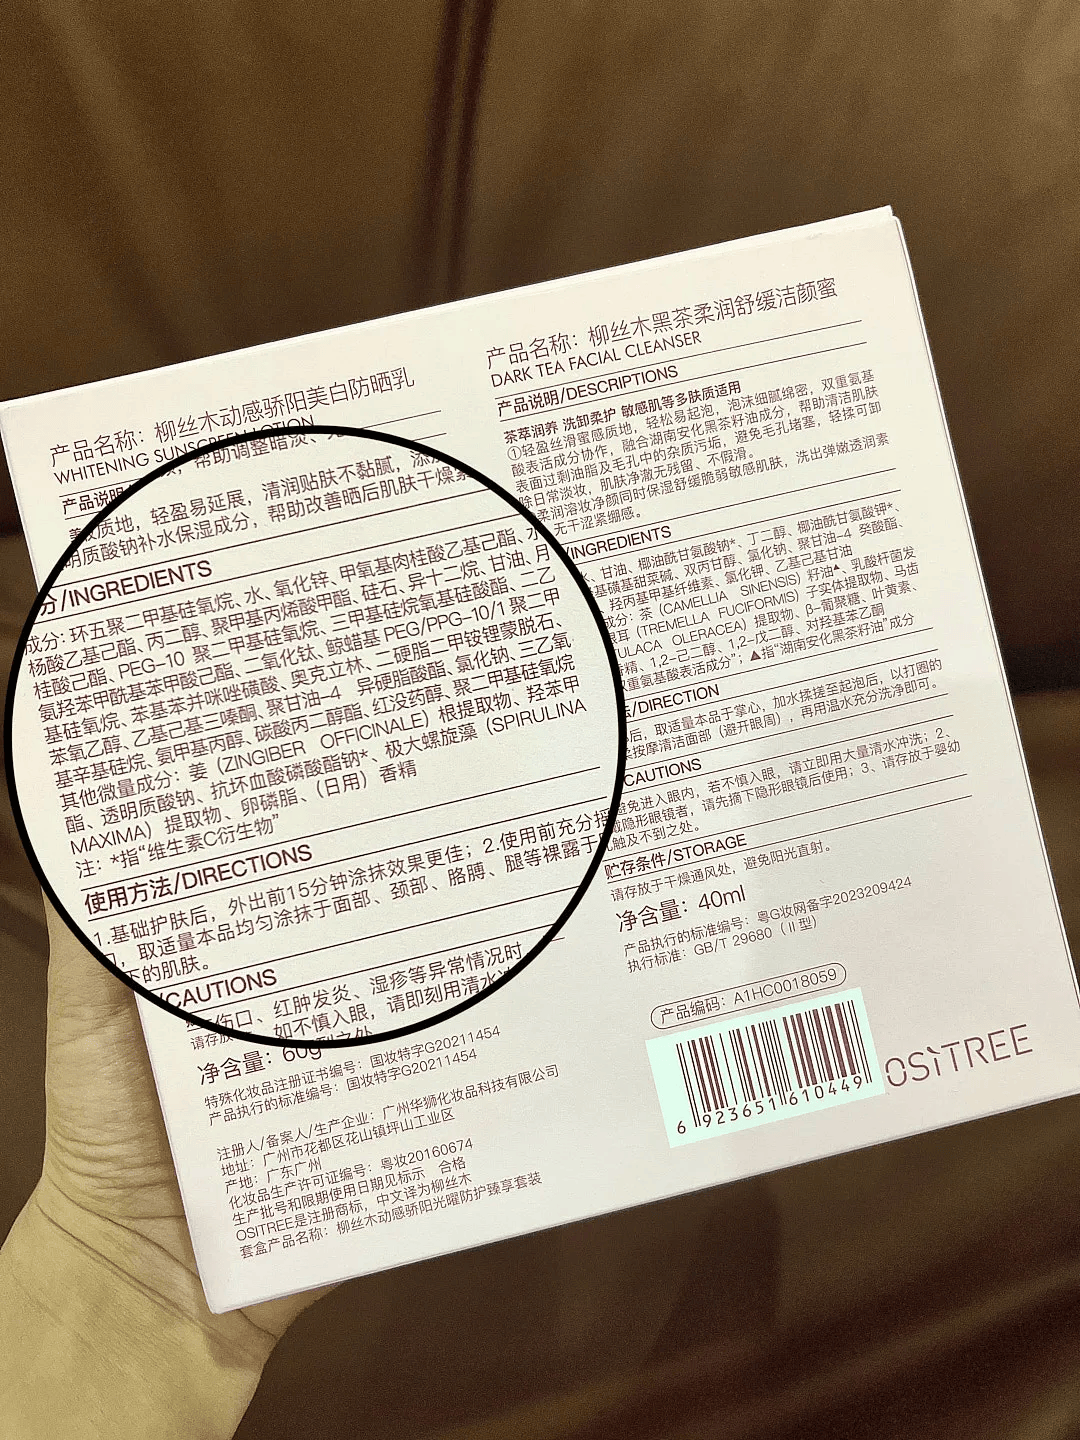 产品名称：柳丝木动感骄阳美白防晒乳
WHITENING SUNSCREEN LOTION
产品说明
质地，轻盈易延展，清润贴肤不黏腻，添
明质酸钠补水保湿成分，帮助改善晒后肌肤干燥
分/INGREDIENTS
成分：环五聚二甲基硅氧烷、水、氧化锌、甲氧基肉桂酸乙基己酯、水
杨酸乙基己酯、丙二醇、聚甲基丙烯酸甲酯、硅石、异十二烷、甘油、月
桂酸己酯、PEG-10 聚二甲基硅氧烷、三甲基硅烷氧基硅酸酯、二乙
氨羟苯甲酰基苯甲酸己酯、二氧化钛、鲸蜡基 PEG/PPG-10/1 聚二甲
基硅氧烷、苯基苯并咪唑磺酸、奥克立林、二硬脂二甲铵锂蒙脱石、
苯氧乙醇、乙基己基三嗪酮、聚甘油-4 异硬脂酸酯、氯化钠、三乙氧
基辛基硅烷、氨甲基丙醇、碳酸丙二醇酯、红没药醇、聚二甲基硅氧烷
其他微量成分：姜（ZINGIBER OFFICINALE）根提取物、羟苯甲
酯、透明质酸钠、抗坏血酸磷酸酯钠*、极大螺旋藻（SPIRULINA
MAXIMA）提取物、卵磷脂、（日用）香精
注：*指“维生素C衍生物”
使用方法/DIRECTIONS
1.基础护肤后，外出前15分钟涂抹效果更佳；2.使用前充分摇
，取适量本品均匀涂抹于面部、颈部、胳膊、腿等裸露于
的肌肤。
/CAUTIONS
伤口、红肿发炎、湿疹等异常情况时
如不慎入眼，请即刻用清水
请存放
净含量：60g
特殊化妆品注册证书编号：国妆特字G20211454
产品执行的标准编号：国妆特字G20211454
注册人/备案人/生产企业：广州华狮化妆品科技有限公司
地址：广州市花都区花山镇坪山工业区
产地：广东广州
化妆品生产许可证编号：粤妆20160674
生产批号和限期使用日期见标示 合格
OSITREE是注册商标，中文译为柳丝木
套盒产品名称：柳丝木动感骄阳光曜防护臻享套装
产品名称：柳丝木黑茶柔润舒缓洁颜蜜
DARK TEA FACIAL CLEANSER
产品说明/DESCRIPTIONS
茶萃润养 洗卸柔护 敏感肌等多肤质适用
①轻盈丝滑蜜感质地，轻松易起泡，泡沫细腻绵密，双重氨基
酸表活成分协作，融合湖南安化黑茶籽油成分，帮助清洁肌肤
表面过剩油脂及毛孔中的杂质污垢，避免毛孔堵塞，轻揉可卸
除日常淡妆，肌肤净澈无残留、不假滑。
柔润溶妆净颜同时保湿舒缓脆弱敏感肌肤，洗出弹嫩透润素
无干涩紧绷感。
/INGREDIENTS
水、甘油、椰油酰甘氨酸钠*、丁二醇、椰油酰甘氨酸钾*、
基磺基甜菜碱、双丙甘醇、氯化钠、聚甘油-4 癸酸酯、
羟丙基甲基纤维素、氯化钾、乙基己基甘油
成分：茶（CAMELLIA SINENSIS）籽油▲、乳酸杆菌发
银耳（TREMELLA FUCIFORMIS）子实体提取物、马齿
TULACA OLERACEA）提取物、β-葡聚糖、叶黄素、
香精、1,2-己二醇、1,2-戊二醇、对羟基苯乙酮
双重氨基酸表活成分”；▲指“湖南安化黑茶籽油”成分
法/DIRECTION
后，取适量本品于掌心，加水揉搓至起泡后，以打圈的
柔按摩清洁面部（避开眼周），再用温水充分洗净即可。
CAUTIONS
避免进入眼内，若不慎入眼，请立即用大量清水冲洗；2、
戴隐形眼镜者，请先摘下隐形眼镜后使用；3、请存放于婴幼
触及不到之处。
贮存条件/STORAGE
请存放于干燥通风处，避免阳光直射。
净含量：40ml
产品执行的标准编号：粤G妆网备字2023209424
执行标准：GB/T 29680（Ⅱ型）
产品编码：A1HC0018059
6 923651 610449
OSiTREE